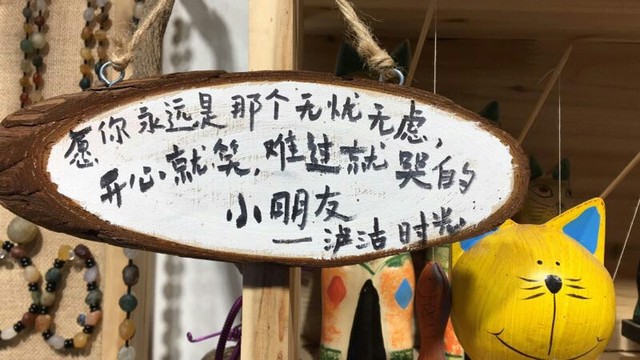 愿你永远是那个无忧无虑，
开心就笑，难过就哭的
小朋友
一泸沽时光